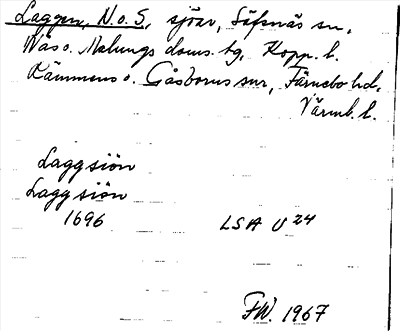 Laggen, N. o. S., sjöar, Säfsnäs sn,
Nås o. Malungs doms. tg, Kopp. l.
Rämmens o. Gåsborns snr, Färnebo hd,
Värml. l.
Laggsiön
Laggsiön
1696 LSA U 24
FW. 1967